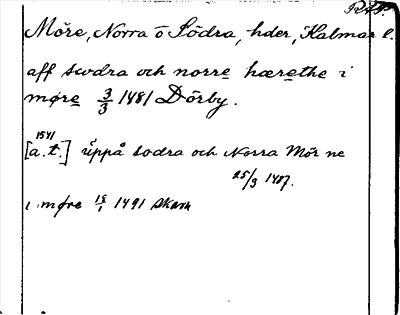 RAP.
Möre, Norra o Södra, hder, Kalmar l.
aff swdra och norre hærethe i
møre 3/3 1481 Dörby.
1541
[a.t.] uppå sodra och Norra Mör ne
25/3 1487.
i møre 18/1 1491 Skarn